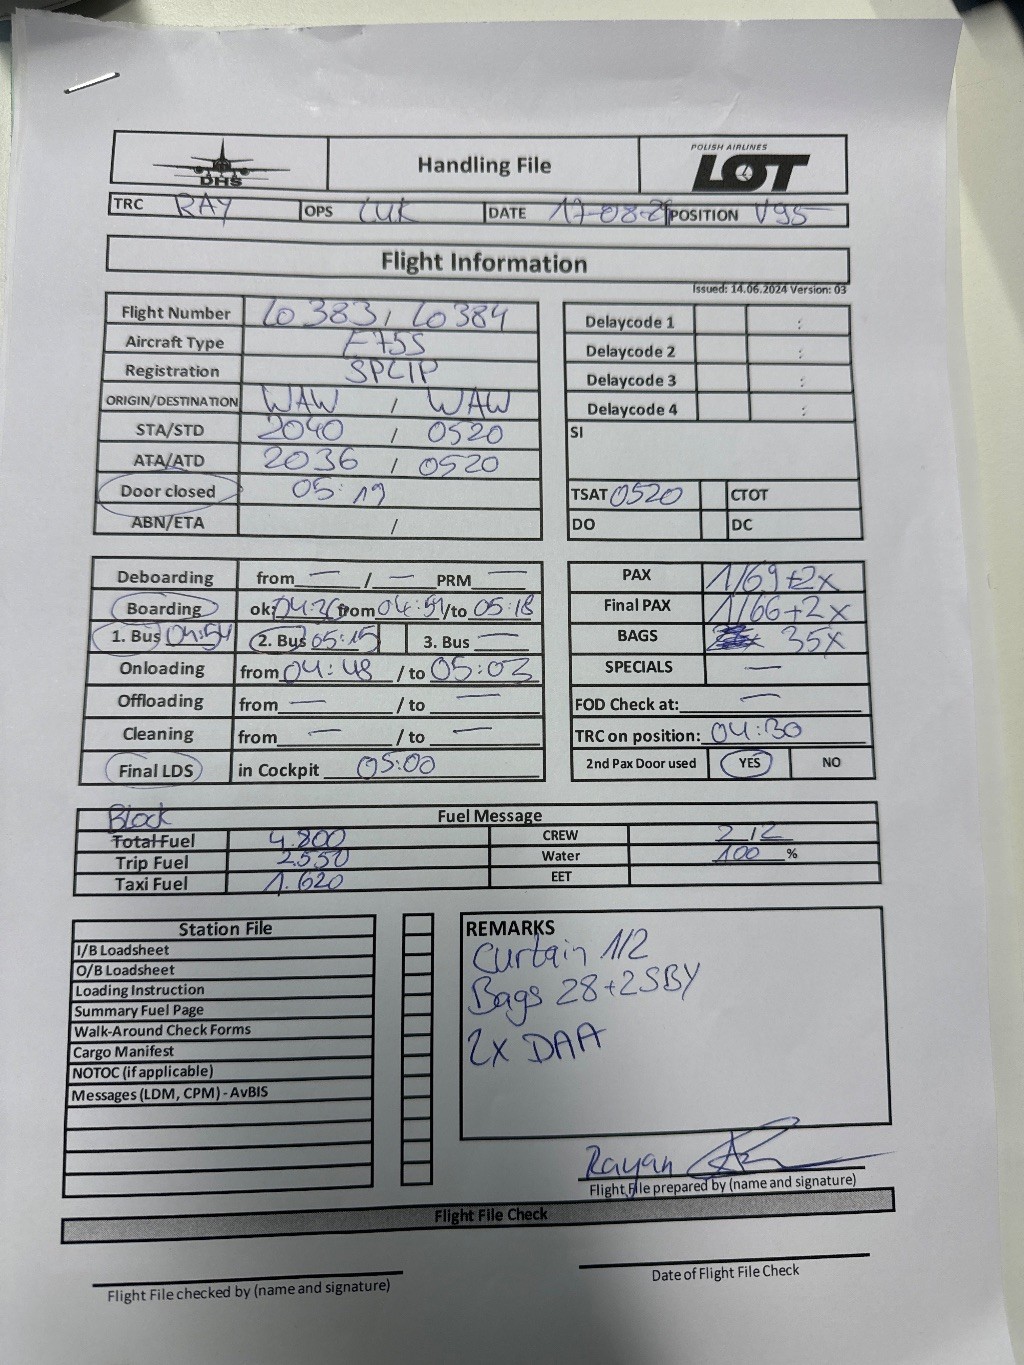 DHS Handling File POLISH AIRLINES LOT
TRC RAY OPS LUK DATE 17-08-2 POSITION V95
Flight Information
Issued: 14.06.2024 Version: 03
Flight Number LO 383, LO 384
Aircraft Type E75S
Registration SPLIP
ORIGIN/DESTINATION WAW / WAW
STA/STD 2040 / 0520
ATA/ATD 2036 / 0520
Door closed 05:19
ABN/ETA /
Delaycode 1 :
Delaycode 2 :
Delaycode 3 :
Delaycode 4 :
SI
TSAT 0520 CTOT
DO DC
Deboarding from — / — PRM —
Boarding ok: 04:26 from 04:51 /to 05:18
1. Bus 04:54 2. Bus 05:15 3. Bus —
Onloading from 04:48 / to 05:03
Offloading from — / to —
Cleaning from — / to —
Final LDS in Cockpit 05:00
PAX 1/69+2x
Final PAX 1/66+2x
BAGS 35x
SPECIALS —
FOD Check at: —
TRC on position: 04:30
2nd Pax Door used YES NO
Block Fuel Message
Total Fuel 4.800 CREW 2 / 2
Trip Fuel 2.550 Water 100 %
Taxi Fuel 1.620 EET
Station File
I/B Loadsheet
O/B Loadsheet
Loading Instruction
Summary Fuel Page
Walk-Around Check Forms
Cargo Manifest
NOTOC (if applicable)
Messages (LDM, CPM) - AvBIS
REMARKS
Curtain 1/2
Bags 28+2SBY
2x DAA
Rayan
Flight File prepared by (name and signature)
Flight File Check
Flight File checked by (name and signature)
Date of Flight File Check